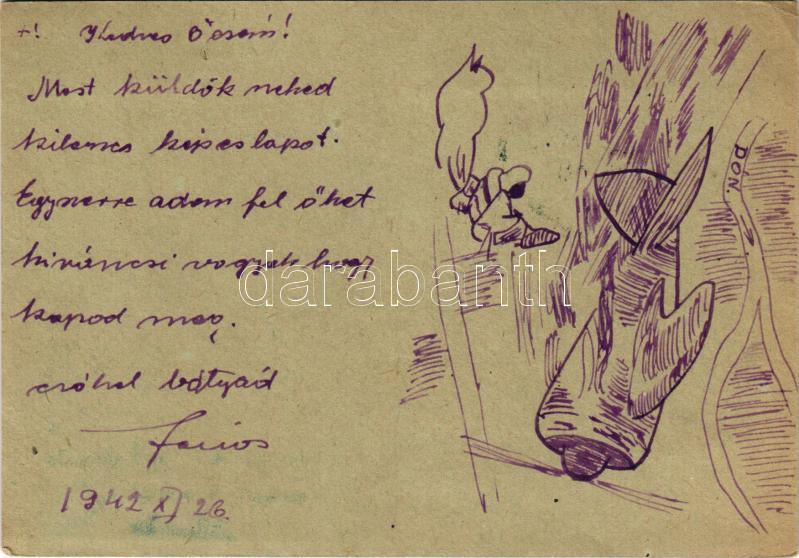 +! Kedves Öcsém!
Most küldök neked
kilencs képeslapot.
Egyszerre adom fel őket
kiváncsi vagyok hogy
kapod meg.
csókol bátyád
1942 XI 26.
DON.
darabanth